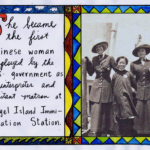 She became
the first
Chinese woman
employed by the
U.S. government as
interpreter and
assistant matron at
Angel Island Immi-
gration Station.